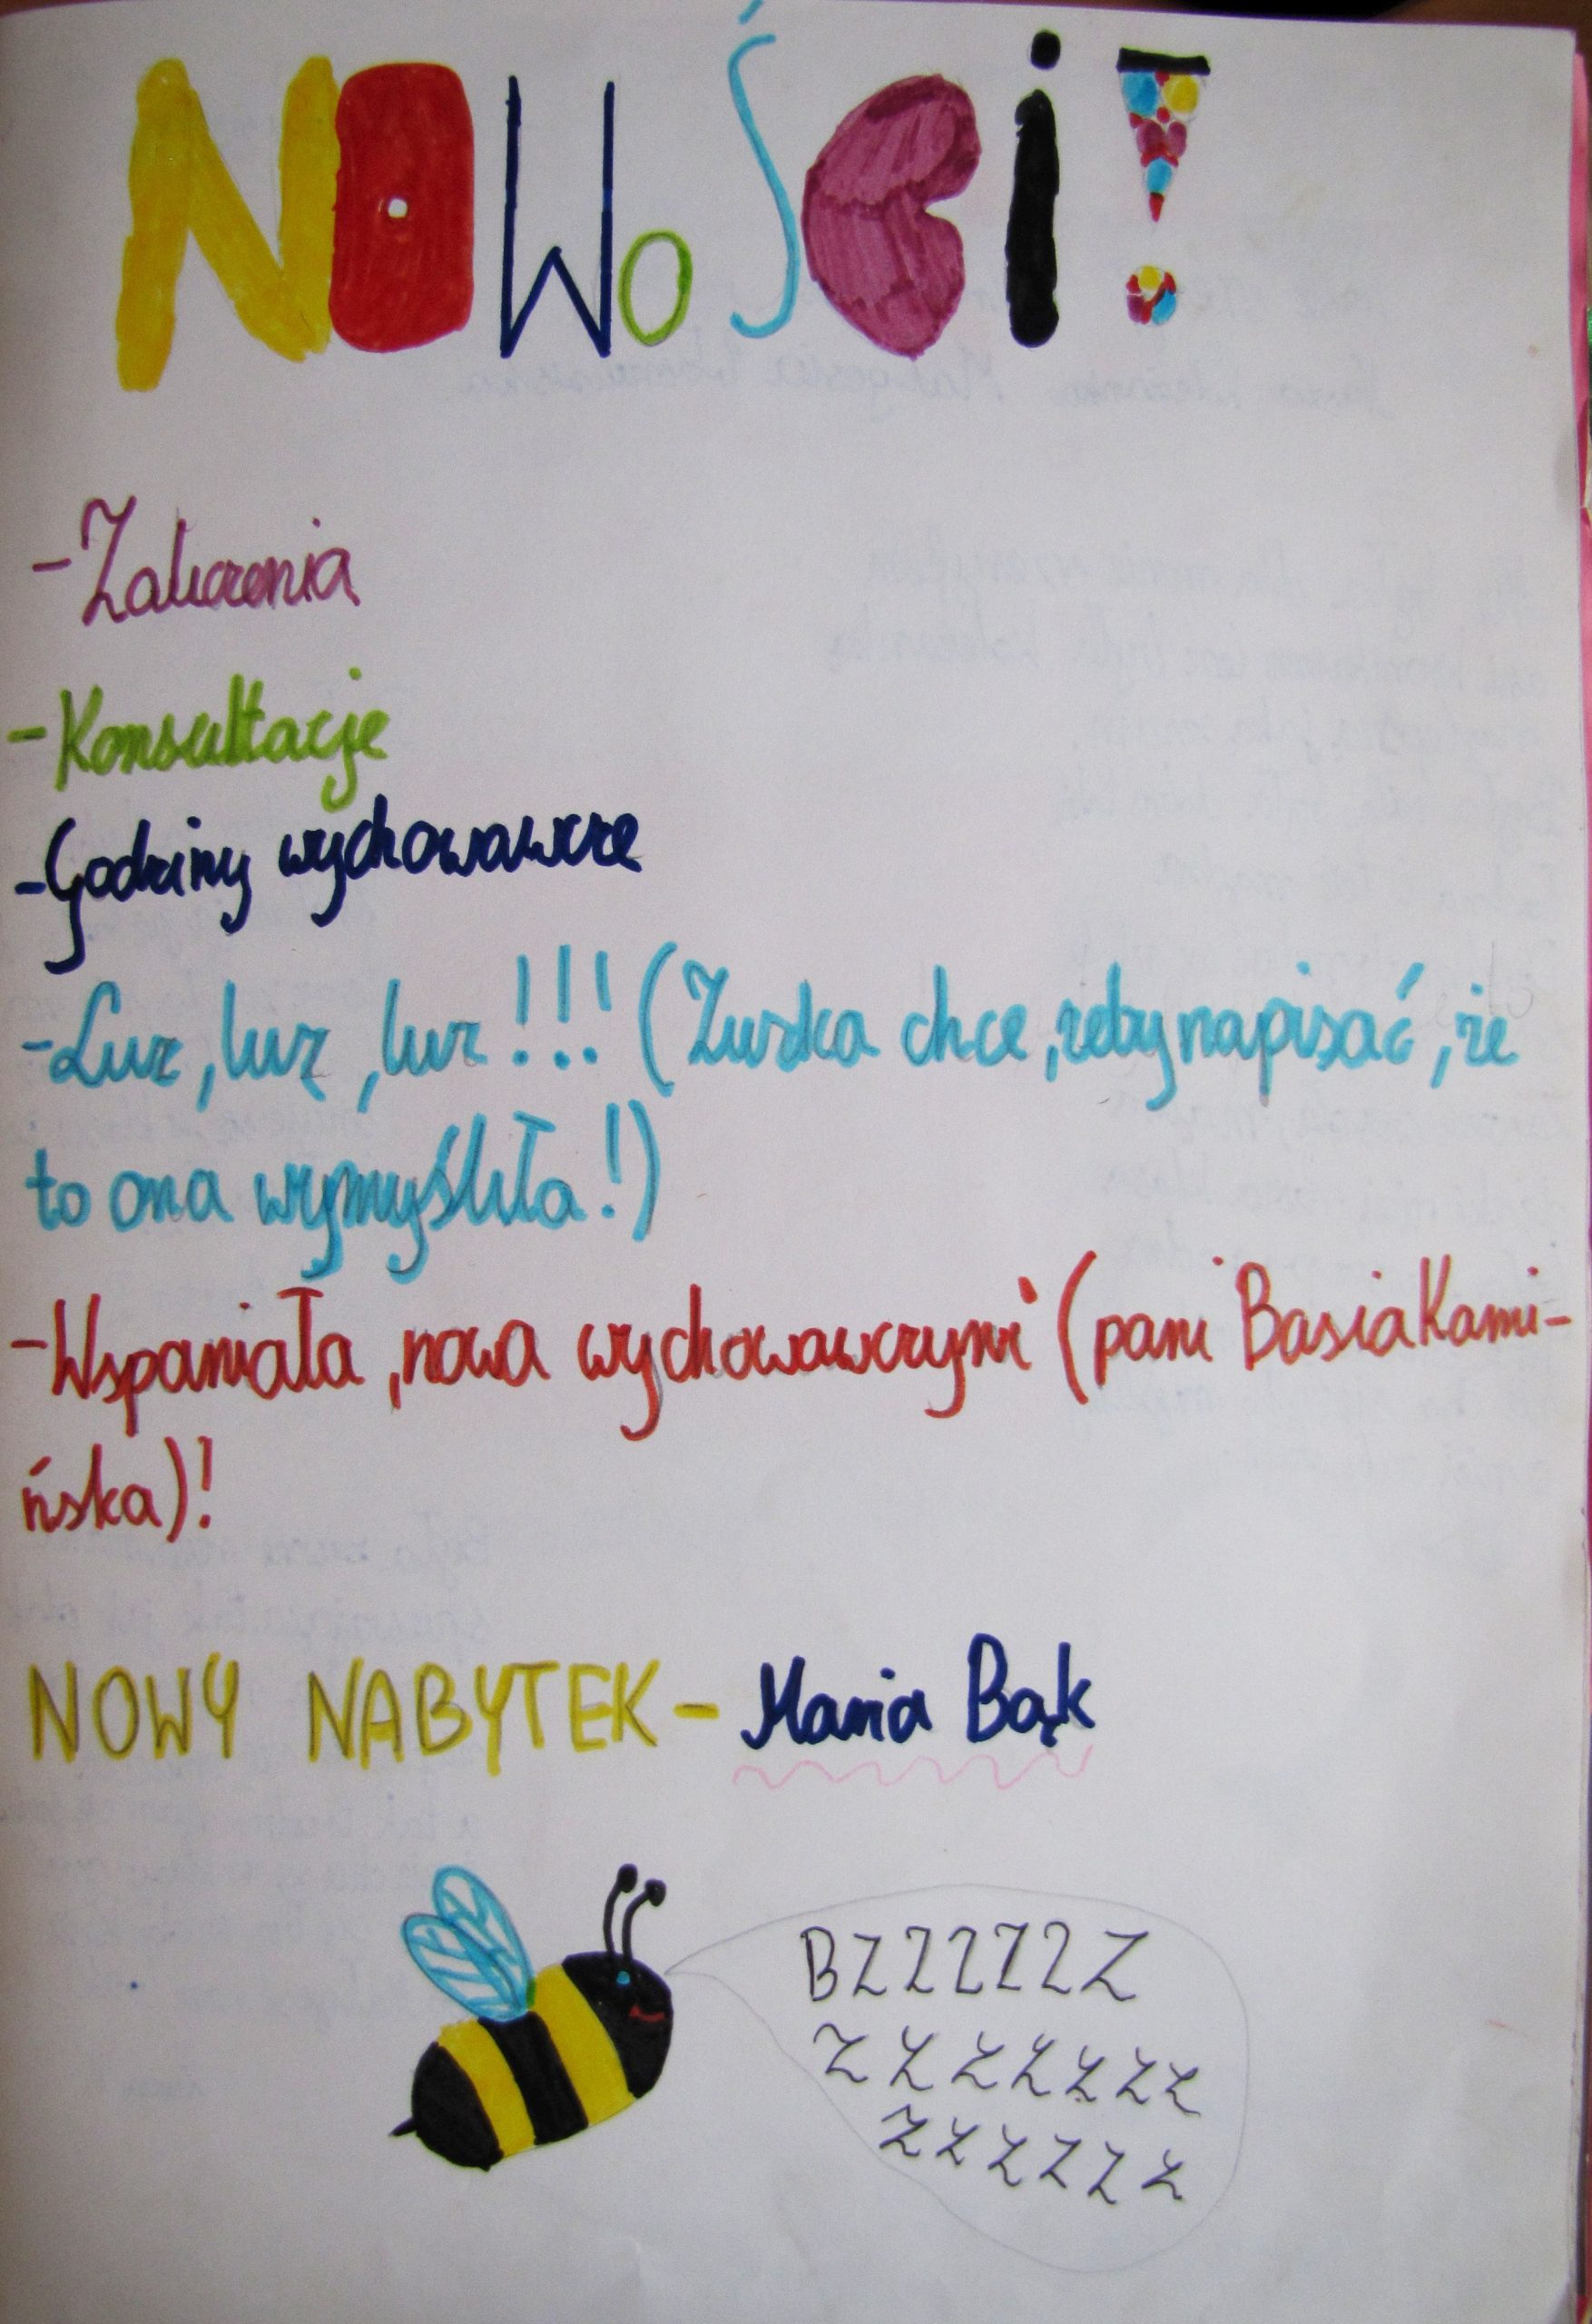 NOWOŚCi!
-Zaliczenia
-Konsultacje
-Godziny wychowawcze
-Luz, luz, luz!!! (Zuzka chce, żeby napisać, że
to ona wymyśliła!)
-Wspaniała, nowa wychowawczyni (pani Basia Kami-
ńska)!
NOWY NABYTEK - Mania Bąk
BZZZZZZ
ZZZZZZZ
ZZZZZZ